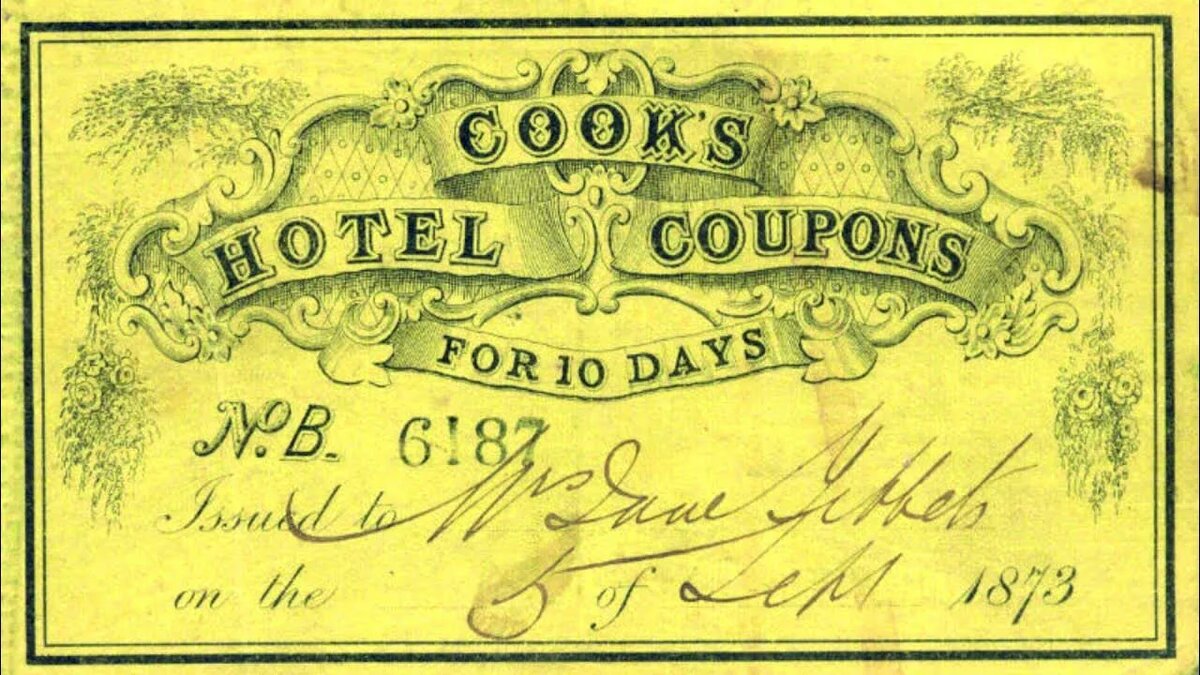 COOK'S
HOTEL COUPONS
FOR 10 DAYS
No. B. 6187
Issued to Mrs Jane Tibbets
on the 5 of Sept 1873